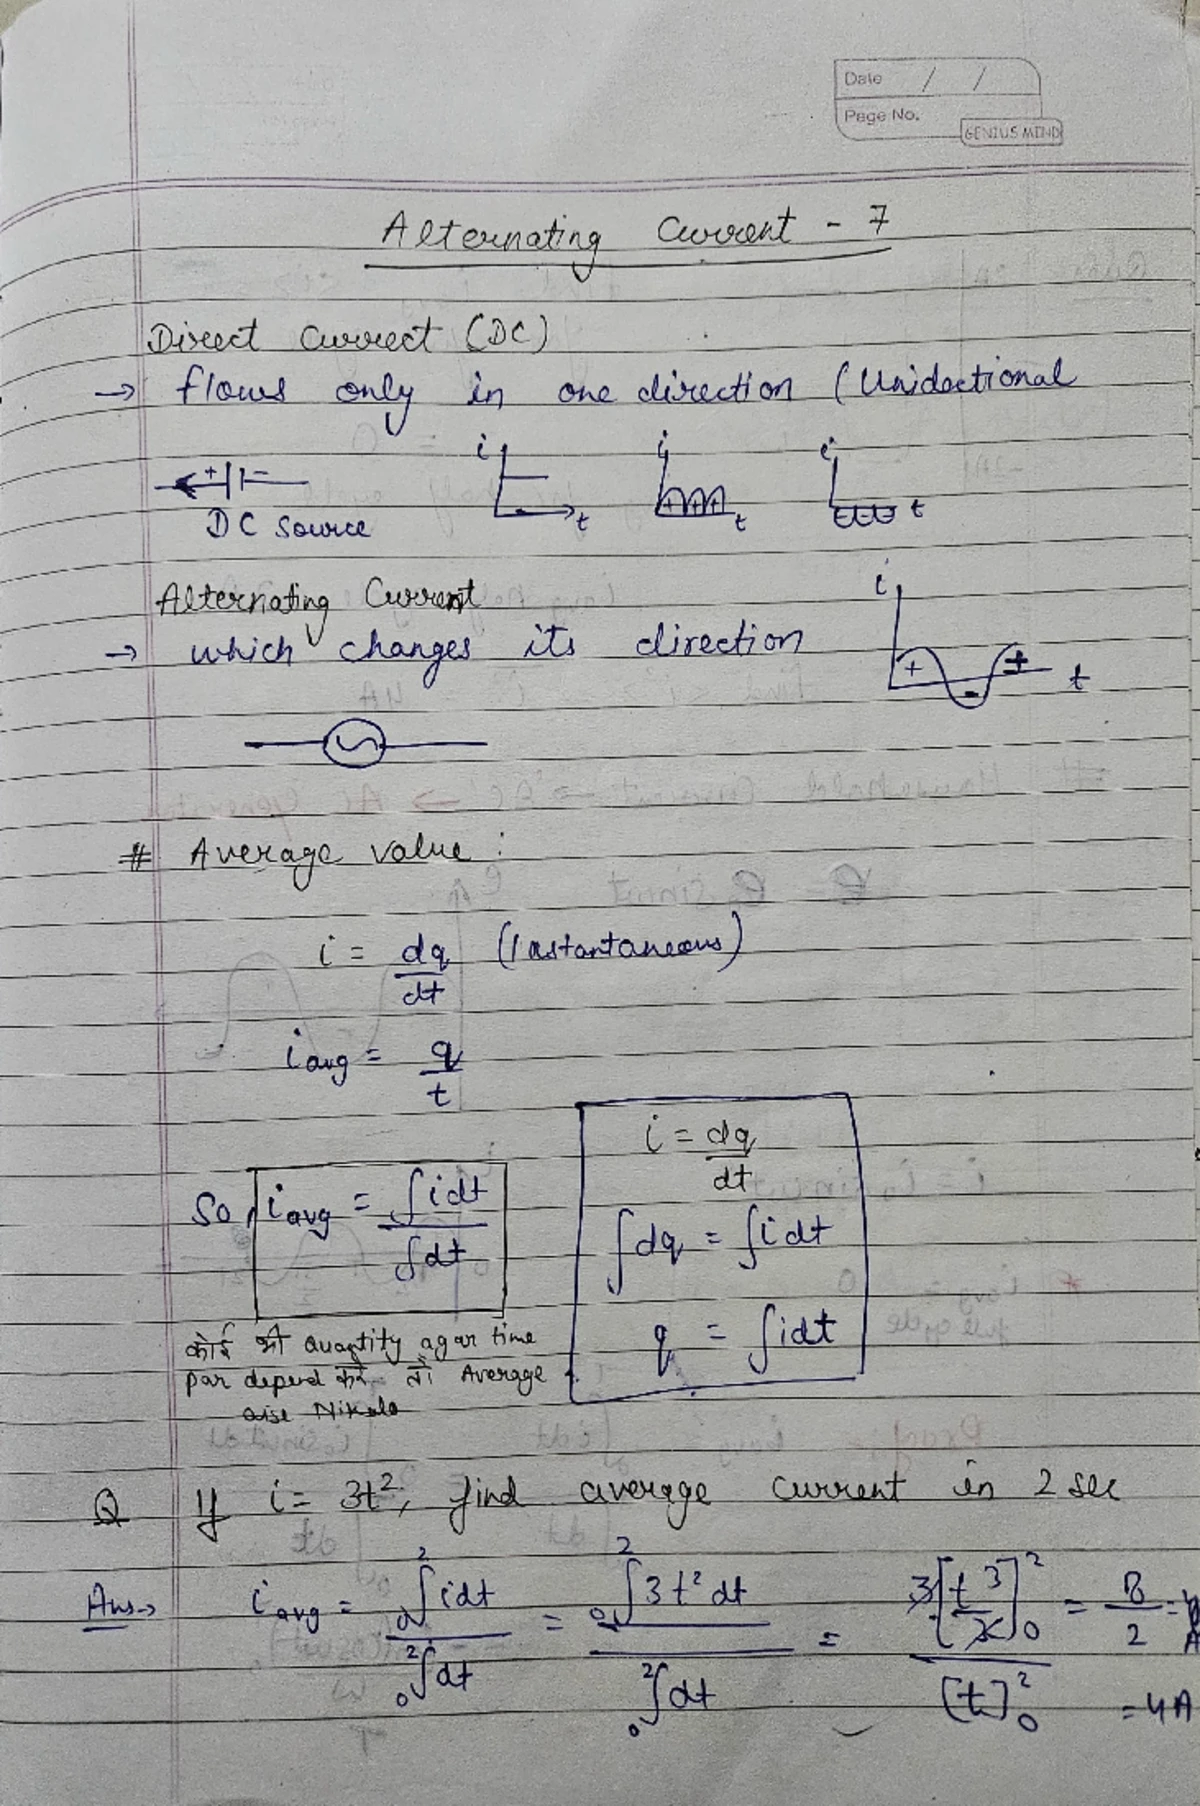 Date / /
Page No.
GENIUS MIND
Alternating Current - 7
Direct Current (DC)
→ flows only in one direction (Unidectional
+ -
DC Source
i t
i + + + t
i t
Alternating Current
→ which changes its direction
i + - + t
# Average value :
i = dq/dt (Instantaneous)
i avg = q/t
So, i avg = ∫idt / ∫dt
i = dq/dt
∫dq = ∫idt
q = ∫idt
कोई भी quantity agar time
par depend करे तो Average
aise Nikalo
Q If i = 3t², find average current in 2 sec
Ans→ i avg = ₀∫² idt / ₀∫² dt = ₀∫² 3t² dt / ₀∫² dt = 3[t³/3]₀² / [t]₀² = 8/2 = 4A
= 4A